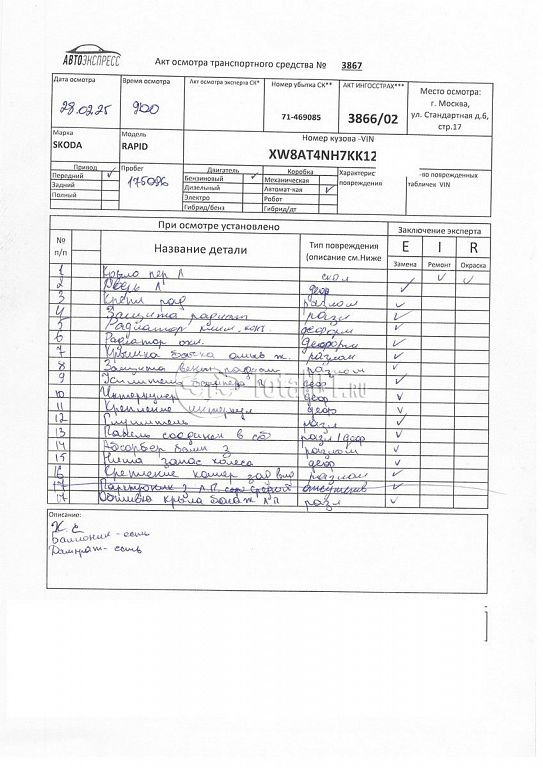 АВТОЭКСПРЕСС
Акт осмотра транспортного средства № 3867
Дата осмотра
28.02.25
Время осмотра
900
Акт осмотра эксперта СК*
Номер убытка СК**
71-469085
АКТ ИНГОССТРАХ***
3866/02
Место осмотра:
г. Москва,
ул. Стандартная д.6,
стр.17
Марка
SKODA
Модель
RAPID
Номер кузова -VIN
XW8AT4NH7KK12
Привод
Передний ✓
Задний
Полный
Пробег
Двигатель
Бензиновый ✓
Дизельный
Электро
Гибрид/бенз
Коробка
Механическая
Автомат-кая ✓
Робот
Гибрид/дт
Характерис
повреждения
-во поврежденных
табличек VIN
При осмотре установлено
Заключение эксперта
№
п/п
Название детали
Тип повреждения
(описание см.Ниже
E I R
Замена Ремонт Окраска
1 Крыло пер Л скол ✓ ✓
2 Дверь деф ✓
3 разлом ✓
4 Защита разл ✓
5 Радиатор конт. деформ ✓
6 Радиатор охл. Деформ ✓
7 Крышка бачка омыв ж. разлом ✓
8 Защита разлом ✓
9 Усилитель бампера деф ✓
10 Интеркулер деф ✓
11 Крепление интеркул деф ✓
12 Глушитель разл ✓
13 Панель в сб разл/деф ✓
14 Абсорбер бамп З разлом ✓
15 Ниша запас колеса деф ✓
16 Крепление камер зад вид разлом ✓
17 Парктроник З отсутств ✓
17 крыла разл ✓
Описание:
Х. Е
Баллоник - есть
Домкрат - есть